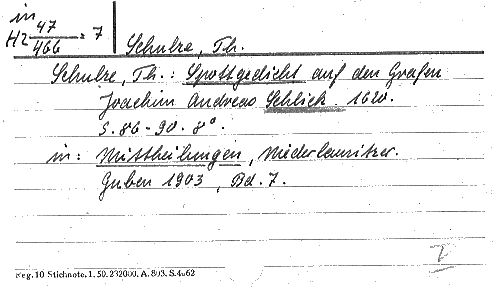 in
H2 47/466 = 7
Schulze, Th.
Schulze, Th.: Spottgedicht auf den Grafen
Joachim Andreas Schlick 1620.
S. 86-90. 8°.
in: Mittheilungen, Niederlausitzer.
Guben 1903, Bd. 7.
Reg. 10 Stichnote. 1. 50. 232000. A. 803. S.4062